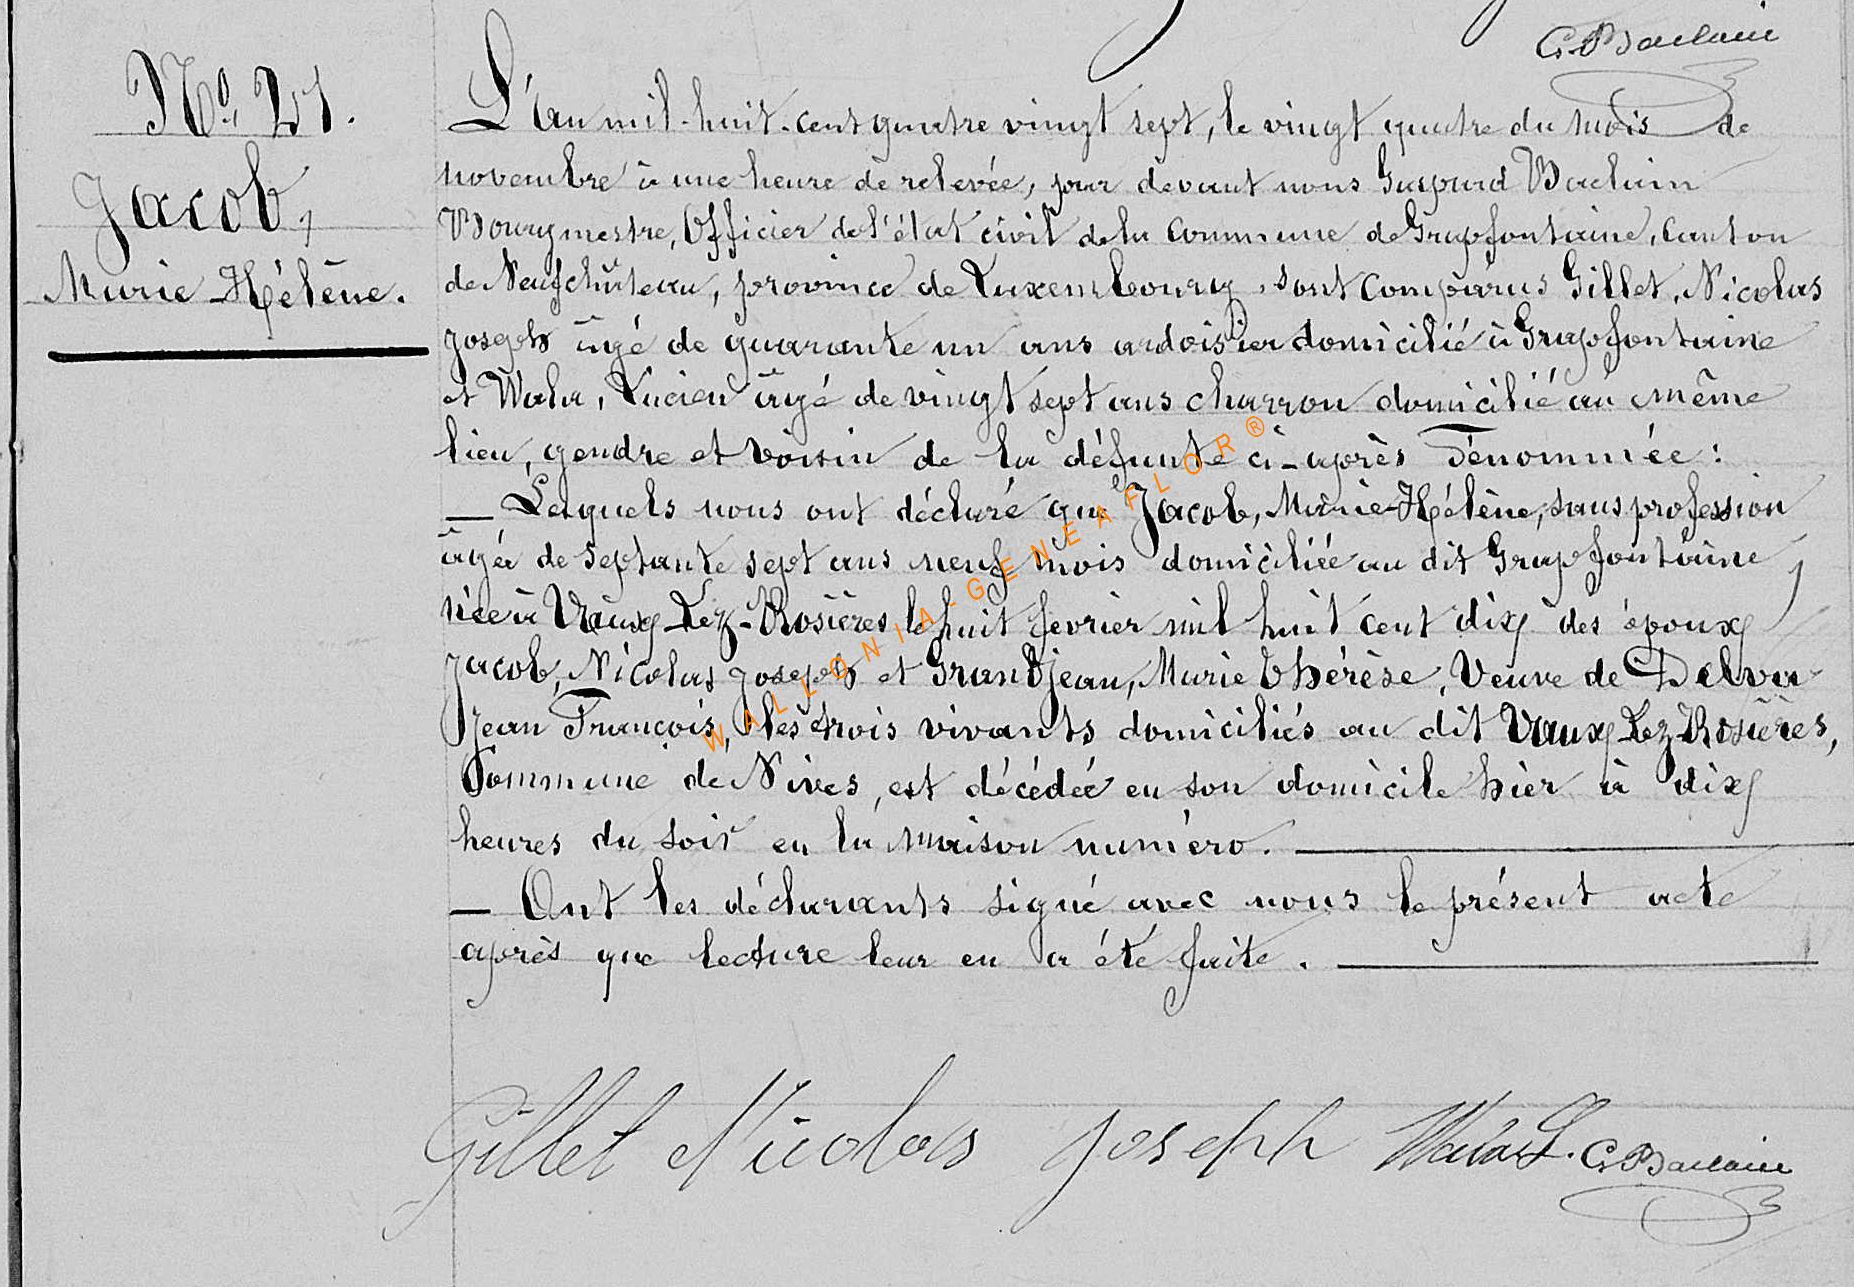 G. Baclain
No. 21.
Jacob,
Marie-Hélène.
L'an mil-huit-cent quatre vingt sept, le vingt quatre du mois de
novembre à une heure de relevée, par devant nous Gaspard Baclain
Bourgmestre, Officier de l'état civil de la Commune de Grapfontaine, Canton
de Neufchâteau, province de Luxembourg, sont Comparus Gillet, Nicolas
Joseph âgé de quarante un ans ardoisier domicilié à Grapfontaine
et Wala, Lucien âgé de vingt sept ans charron domicilié au même
lieu, gendre et voisin de la défunte ci-après dénommée :
— Lesquels nous ont déclaré que Jacob, Marie-Hélène, sans profession
âgée de septante sept ans neuf mois domiciliée au dit Grapfontaine,
née à Vaux-Lez-Rosières le huit fevrier mil huit cent dix des époux
Jacob, Nicolas Joseph et Grandjean, Marie Thérèse, Veuve de Delva
Jean François, les trois vivants domiciliés au dit Vaux-Lez-Rosières,
Commune de Nives, est décédée en son domicile hier à dix
heures du soir en la maison numéro.
— Ont les déclarants signé avec nous le présent acte
après que lecture leur en a été faite.
Gillet Nicolas Joseph Wala L. G. Baclain
WALLONIA-GENEAFLOR®